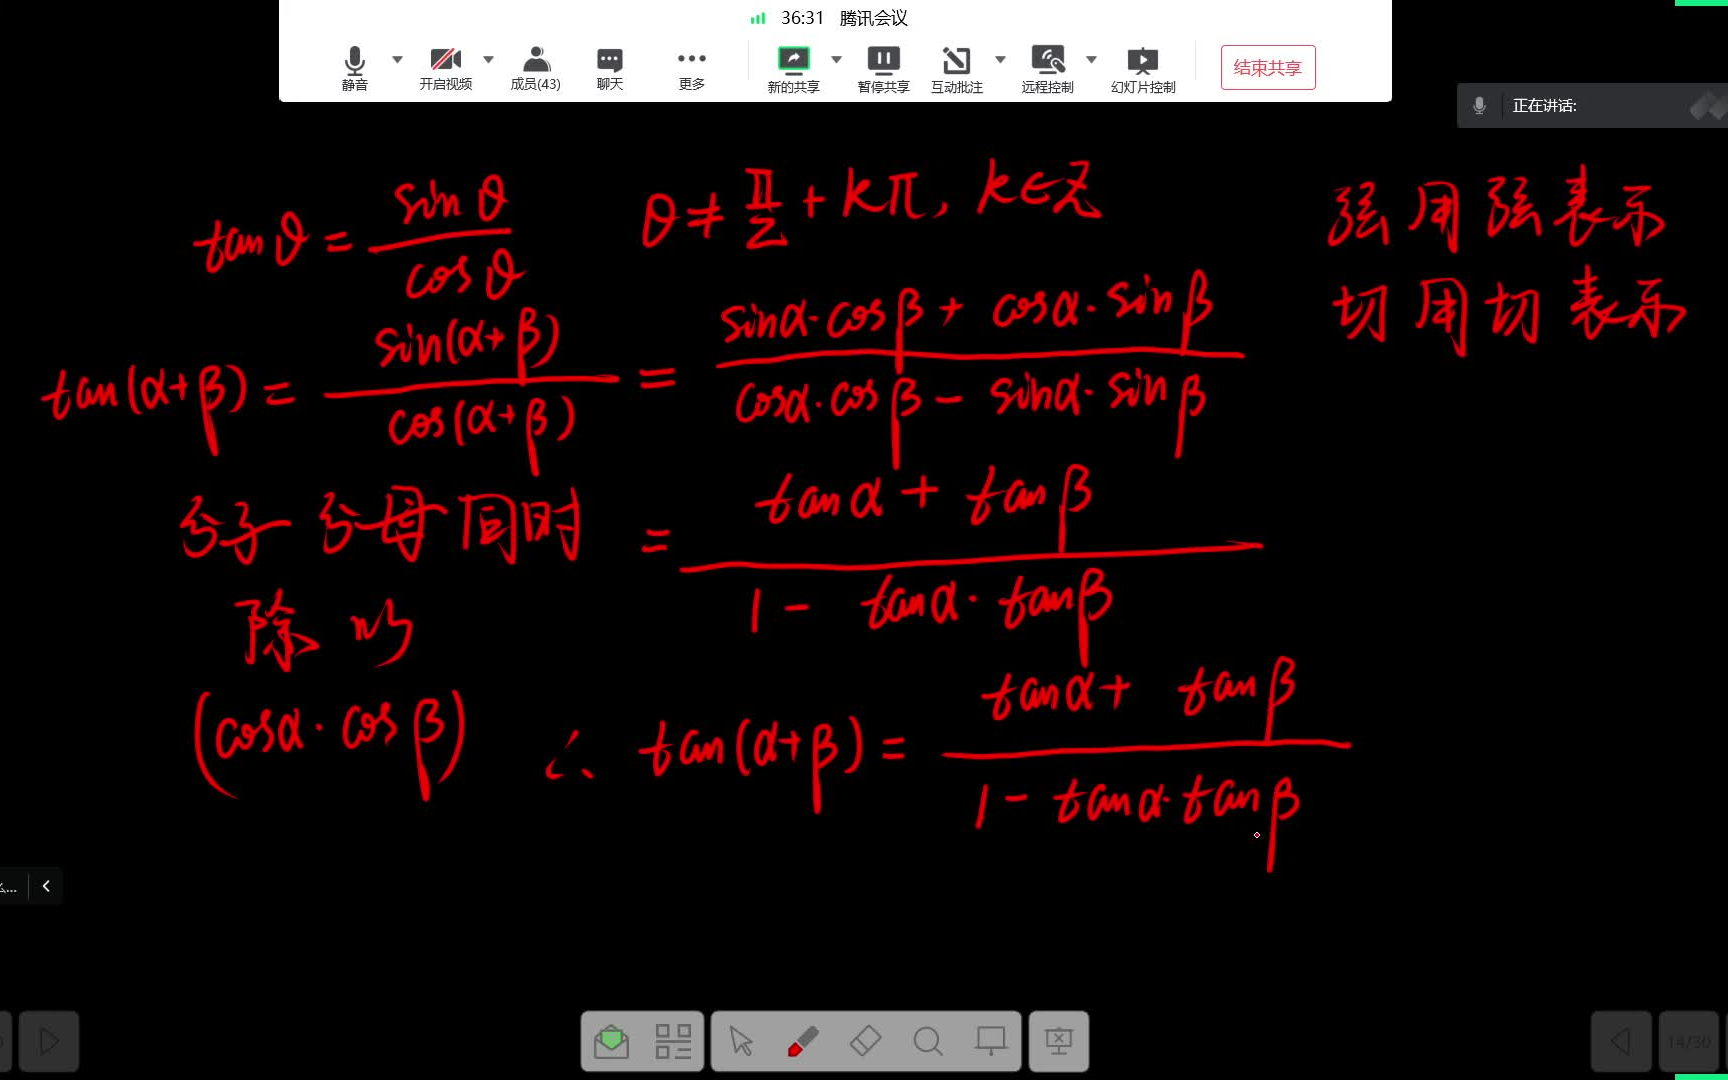 36:31 腾讯会议
静音 开启视频 成员(43) 聊天 更多 新的共享 暂停共享 互动批注 远程控制 幻灯片控制 结束共享
正在讲话:
tanθ = sinθ / cosθ θ ≠ π/2 + kπ, k∈Z
弦用弦表示
切用切表示
tan(α+β) = sin(α+β) / cos(α+β) = sinα·cosβ + cosα·sinβ / cosα·cosβ - sinα·sinβ
分子分母同时 = tanα + tanβ / 1 - tanα·tanβ
除以
(cosα·cosβ) ∴ tan(α+β) = tanα + tanβ / 1 - tanα·tanβ
14/30